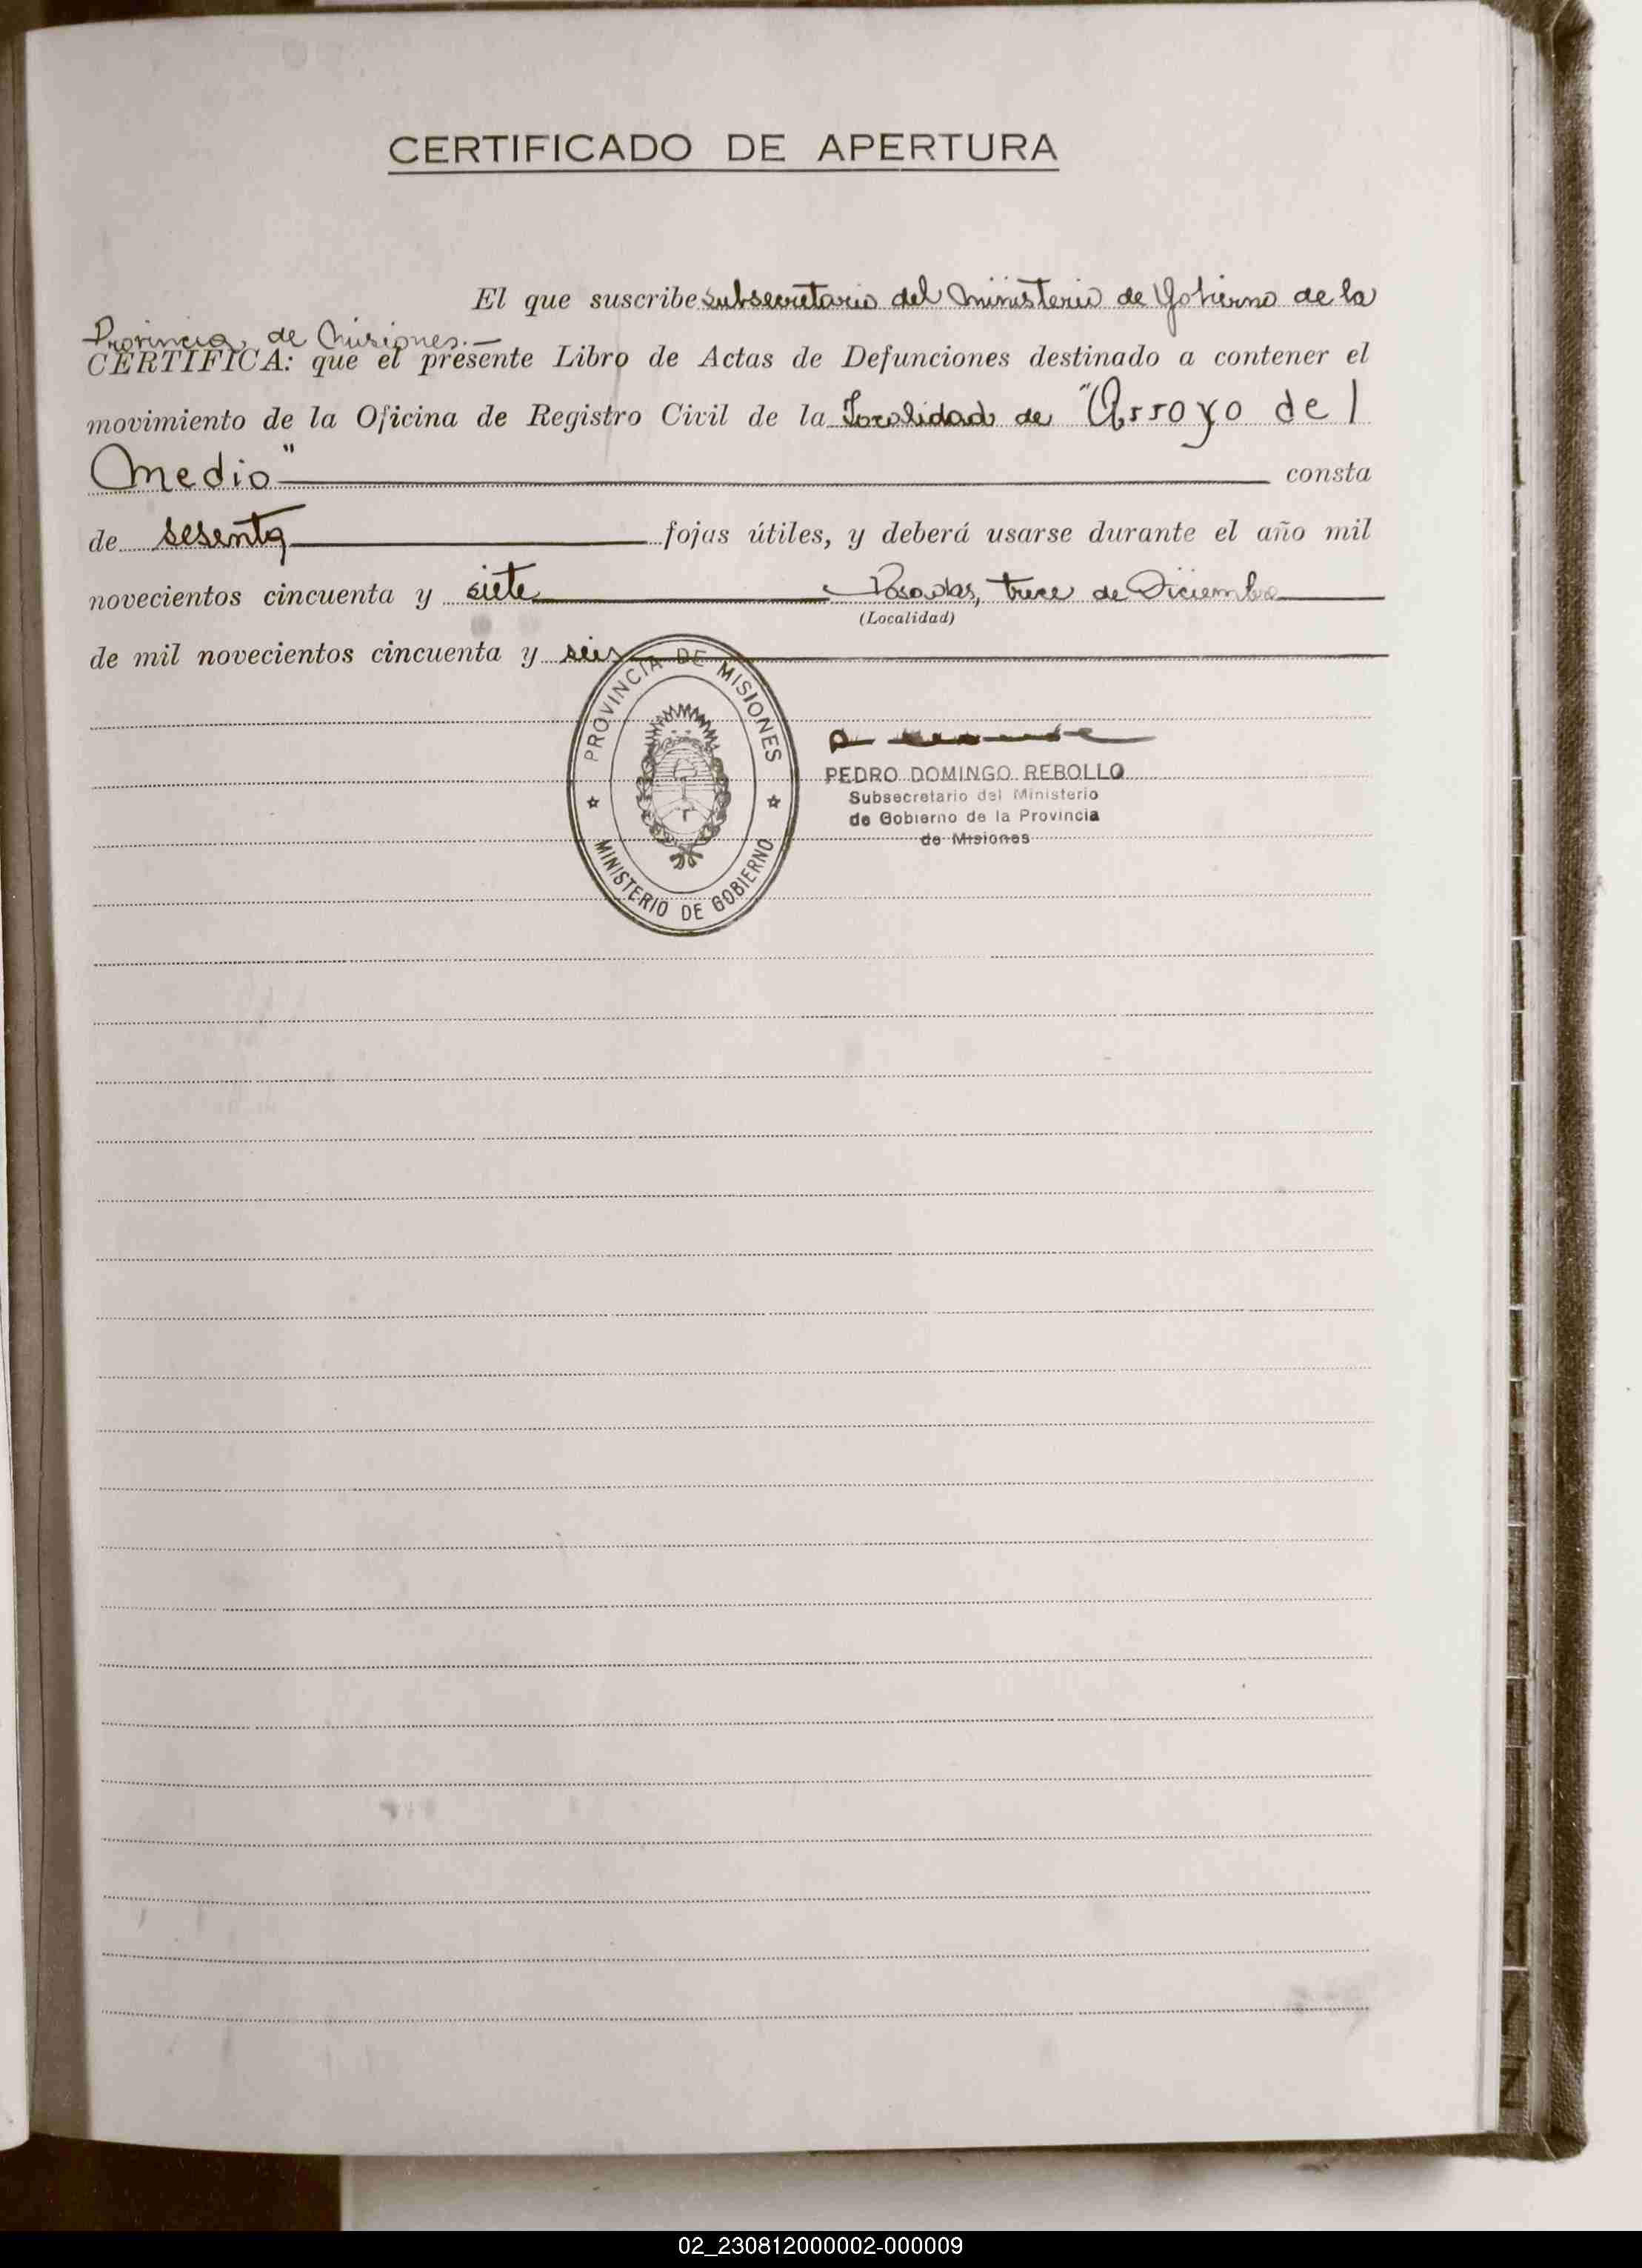 CERTIFICADO DE APERTURA
El que suscribe subsecretario del Ministerio de Gobierno de la
Provincia, de Misiones.—
CERTIFICA: que el presente Libro de Actas de Defunciones destinado a contener el
movimiento de la Oficina de Registro Civil de la Localidad de "Arroyo del
Medio" consta
de sesenta fojas útiles, y deberá usarse durante el año mil
novecientos cincuenta y siete Posadas, trece de Diciembre
(Localidad)
de mil novecientos cincuenta y seis
PROVINCIA DE MISIONES
MINISTERIO DE GOBIERNO
PEDRO DOMINGO REBOLLO
Subsecretario del Ministerio
de Gobierno de la Provincia
de Misiones
02_230812000002-000009